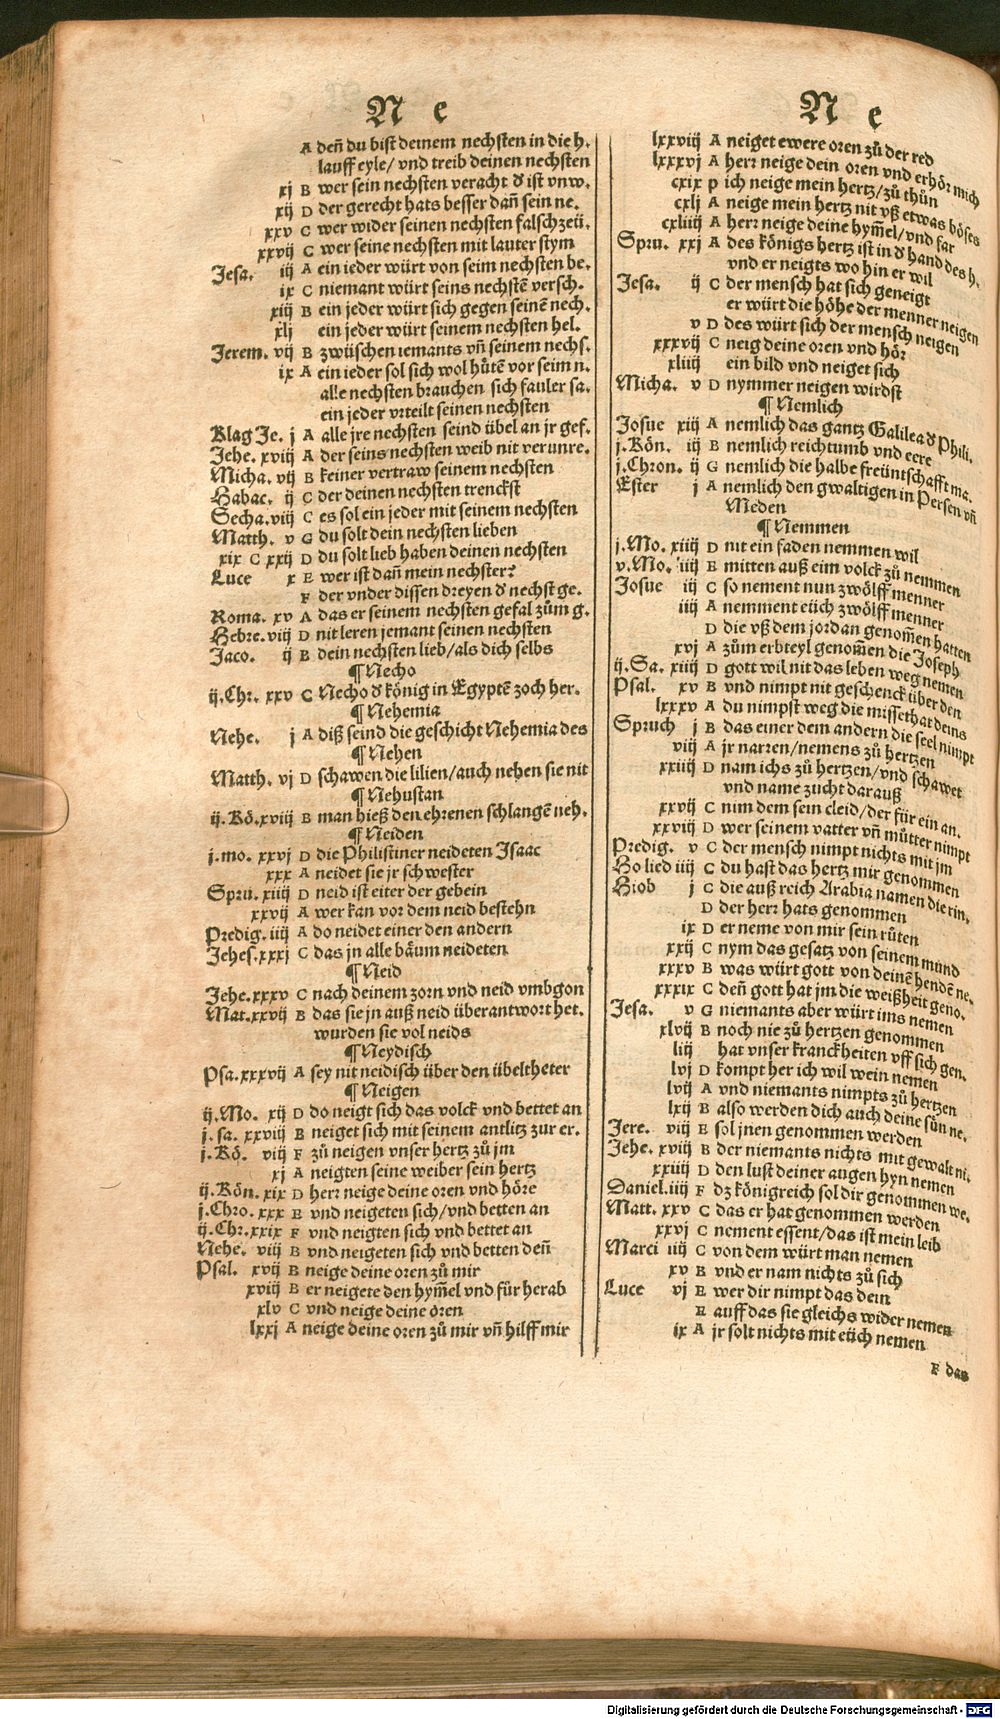 N e
A deñ du bist deinem nechsten in die h.
lauff eyle/ vnd treib deinen nechsten
xj B wer sein nechsten veracht d̕ ist vnw.
xij D der gerecht hats besser dañ sein ne.
xxv C wer wider seinen nechsten falsch zeü.
xxvij C wer seine nechsten mit lauter stym
Jesa. iij A ein ieder würt von seim nechsten be.
ix C niemant würt seins nechstē versch.
xiij B ein jeder würt sich gegen seinē nech.
xlj ein jeder würt seinem nechsten hel.
Jerem. vij B zwüschen iemants vñ seinem nechs.
ix A ein ieder sol sich wol hůtē vor seim n.
alle nechsten brauchen sich fauler sa.
ein jeder vrteilt seinen nechsten
Klag Je. j A alle jre nechsten seind übel an jr gef.
Jehe. xviij A der seins nechsten weib nit verunre.
Micha. vij B keiner vertraw seinem nechsten
Habac. ij C der deinen nechsten trenckst
Secha. viij C es sol ein jeder mit seinem nechsten
Matth. v G du solt dein nechsten lieben
xix C xxij D du solt lieb haben deinen nechsten
Luce x E wer ist dañ mein nechster?
F der vnder dissen dreyen d̕ nechst ge.
Roma. xv A das er seinem nechsten gefal zům g.
Hebre. viij D nit leren jemant seinen nechsten
Jaco. ij B dein nechsten lieb/als dich selbs
¶ Necho
ij. Chr. xxv C Necho d̕ könig in Egyptē zoch her.
¶ Nehemia
Nehe. j A diß seind die geschicht Nehemia des
¶ Nehen
Matth. vj D schawen die lilien/auch nehen sie nit
¶ Nehustan
ij. Kö. xviij B man hieß den ehrenen schlangē neh.
¶ Neiden
j. mo. xxvj D die Philistiner neideten Isaac
xxx A neidet sie jr schwester
Spru. xiiij D neid ist eiter der gebein
xxvij A wer kan vor dem neid bestehn
Predig. iiij A do neidet einer den andern
Jehes. xxxj C das jn alle bäum neideten
¶ Neid
Jehe. xxxv C nach deinem zorn vnd neid vmbgon
Mat. xxvij B das sie jn auß neid überantwort het.
wurden sie vol neids
¶ Neydisch
Psa. xxxvij A sey nit neidisch über den übeltheter
¶ Neigen
ij. Mo. xij D do neigt sich das volck vnd bettet an
j. sa. xxviij B neiget sich mit seinem antlitz zur er.
j. Kö. viij F zů neigen vnser hertz zů jm
xj A neigten seine weiber sein hertz
ij. Kön. xix D herr neige deine oren vnd höre
j. Chro. xxx E vnd neigeten sich/vnd betten an
ij. Chr. xxix F vnd neigten sich vnd bettet an
Nehe. viij B vnd neigeten sich vnd betten deñ
Psal. xvij B neige deine oren zů mir
xviij B er neigete den hym̃el vnd für herab
xlv C vnd neige deine oren
lxxj A neige deine oren zů mir vñ hilff mir
N e
lxxviij A neiget ewere oren zů der red
lxxxvj A herr neige dein oren vnd erhör mich
cxix p ich neige mein hertz/zů thůn
cxlj A neige mein hertz nit vß etwas böses
cxliiij A herr neige deine hym̃el/vnd far
Spru. xxj A des königs hertz ist in d̕ hand des h.
vnd er neigts wo hin er wil
Jesa. ij C der mensch hat sich geneigt
er würt die höhe der menner neigen
v D des würt sich der mensch neigen
xxxvij C neig deine oren vnd hör
xliiij ein bild vnd neiget sich
Micha. v D nymmer neigen wirdst
¶ Nemlich
Josue xiij A nemlich das gantz Galilea d̕ Phili.
j. Kön. iij B nemlich reichtumb vnd eere
j. Chron. ij G nemlich die halbe freüntschafft ma.
Ester j A nemlich den gwaltigen in Persen vñ
Meden
¶ Nemmen
j. Mo. xiiij D nit ein faden nemmen wil
v. Mo. iiij E mitten auß eim volck zů nemmen
Josue iij C so nement nun zwölff menner
iiij A nemment eüch zwölff menner
D die vß dem jordan genom̃en hatten
xvj A zům erbteyl genom̃en die Joseph
ij. Sa. xiiij D gott wil nit das leben weg nemen
Psal. xv B vnd nimpt nit geschenck über den
lxxxv A du nimpst weg die missethat deins
Spruch j B das einer dem andern die seel nimpt
viij A jr narren/nemens zů hertzen
xxiiij D nam ichs zů hertzen/vnd schawet
vnd name zucht darauß
xxvij C nim dem sein cleid/der für ein an.
xxviij D wer seinem vatter vñ můtter nimpt
Predig. v C der mensch nimpt nichts mit jm
Ho lied iiij C du hast das hertz mir genommen
Hiob j C die auß reich Arabia namen die rin.
D der herr hats genommen
ix D er neme von mir sein růten
xxij C nym das gesatz von seinem mund
xxxv B was würt gott von deinē hendē ne.
xxxix C deñ gott hat jm die weißheit geno.
Jesa. v G niemants aber würt ims nemen
xlvij B noch nie zů hertzen genommen
liij hat vnser kranckheiten vff sich gen.
lvj D kompt her ich wil wein nemen
lvij A vnd niemants nimpts zů hertzen
lxij B also werden dich auch deine sün ne.
Jere. viij E sol jnen genommen werden
Jehe. xviij B der niemants nichts mit gewalt ni.
xxiiij D den lust deiner augen hyn nemen
Daniel. iiij F dz königreich sol dir genommen we.
Matt. xxv C das er hat genommen werden
xxvj C nement essent/das ist mein leib
Marci iiij C von dem würt man nemen
xv B vnd er nam nichts zů sich
Luce vj E wer dir nimpt das dein
E auff das sie gleichs wider nemen
ix A jr solt nichts mit eüch nemen
F das
Digitalisierung gefördert durch die Deutsche Forschungsgemeinschaft - DFG